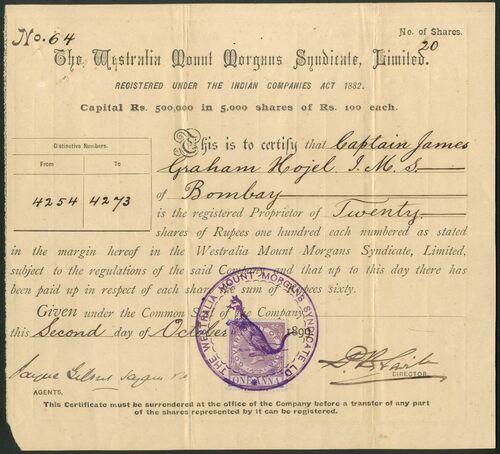 No. 64
No. of Shares.
20
The Westralia Mount Morgans Syndicate, Limited.
REGISTERED UNDER THE INDIAN COMPANIES ACT 1882.
Capital Rs. 500,000 in 5,000 shares of Rs. 100 each.
Distinctive Numbers.
From To
4254 4273
This is to certify that Captain James
Graham Hojel I.M.S.
of Bombay
is the registered Proprietor of Twenty
shares of Rupees one hundred each numbered as stated
in the margin hereof in the Westralia Mount Morgans Syndicate, Limited,
subject to the regulations of the said and that up to this day there has
been paid up in respect of each share the sum of Rupees sixty.
Given under the Common Seal of the Company
this Second day of October 1899
THE WESTRALIA MOUNT MORGANS SYNDICATE LD.
ONE ANNA
AGENTS.
DIRECTOR.
This Certificate must be surrendered at the office of the Company before a transfer of any part
of the shares represented by it can be registered.